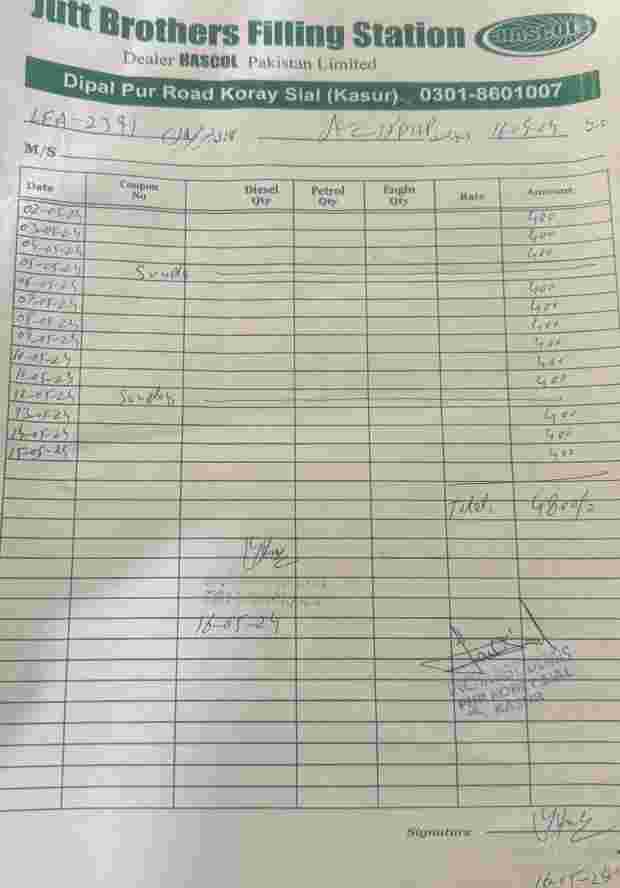 Jutt Brothers Filling Station HASCOL
Dealer HASCOL Pakistan Limited
Dipal Pur Road Koray Sial (Kasur). 0301-8601007
LEA-2391 16-05-24
M/S
Date Coupon No Diesel Qty Petrol Qty Engin Qty Rate Amount
02-05-24 400
03-05-24 400
04-05-24 400
05-05-24 Sunday
06-05-24 400
07-05-24 400
08-05-24 400
09-05-24 400
10-05-24 400
11-05-24 400
12-05-24 Sunday
13-05-24 400
14-05-24 400
15-05-24 400
Total. 4800/=
16-05-24
PUR KORAY SIAL
KASUR
Signature
16-05-24